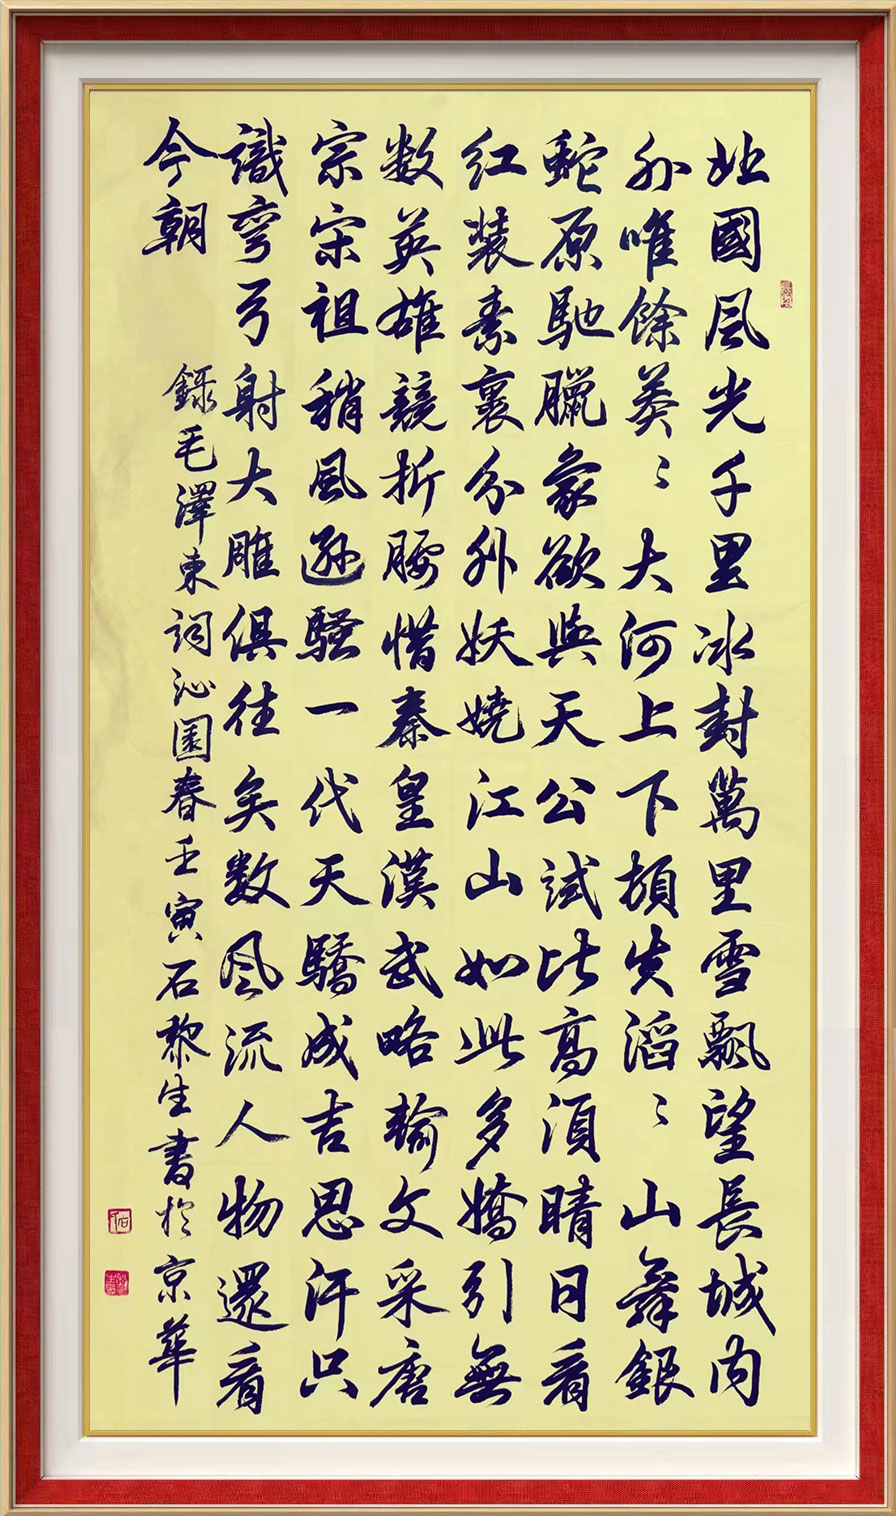 北國風光千里冰封萬里雪飄望長城内
外唯餘莽〻大河上下頓失滔〻山舞銀
蛇原馳臘象欲與天公試比高須晴日看
红裝素裹分外妖嬈江山如此多嬌引無
数英雄競折腰惜秦皇漢武略輸文采唐
宗宋祖稍風遜騷一代天驕成吉思汗只
識彎弓射大雕俱往矣数風流人物還看
今朝
錄毛澤東詞沁園春壬寅石黎生書於京華